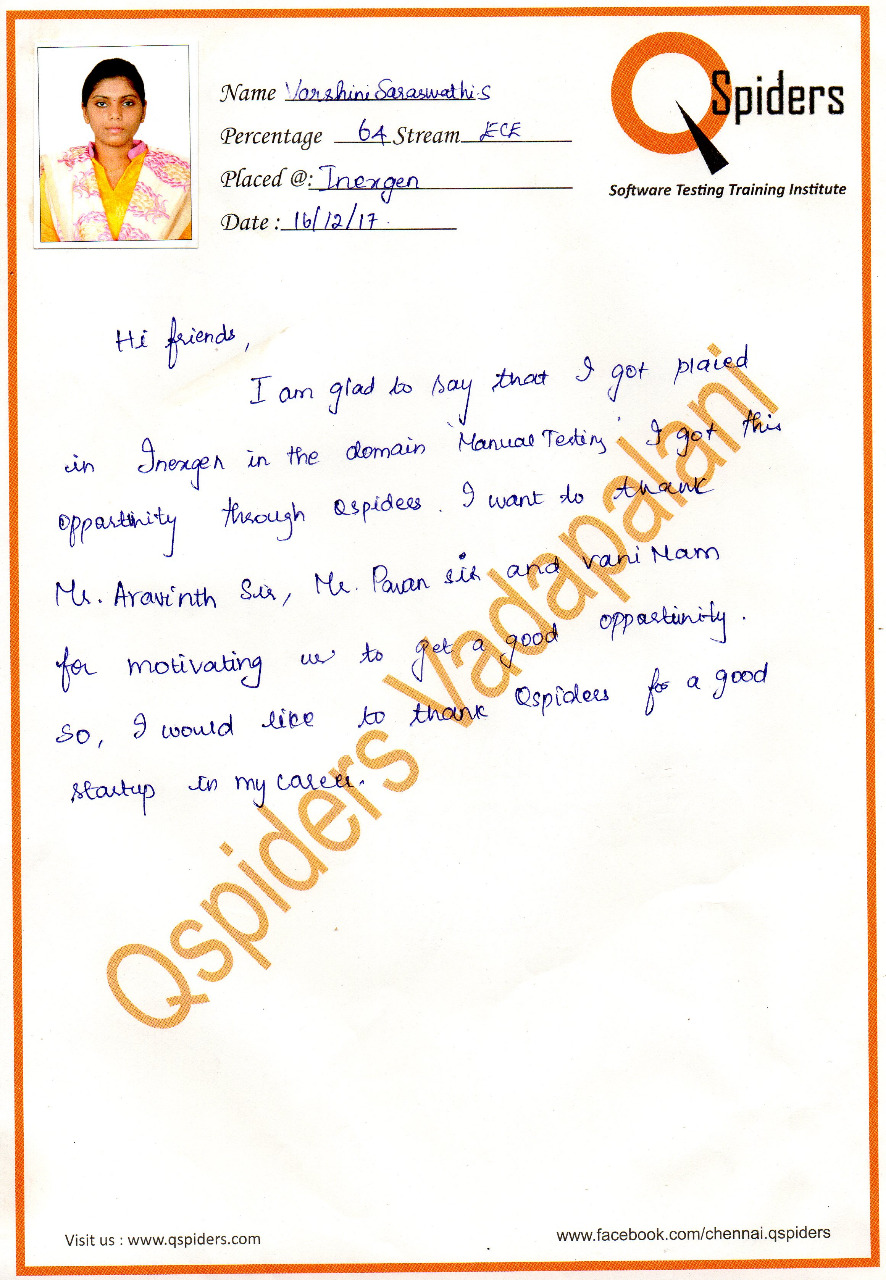 Name Varshini Saraswathi.S
Percentage 64 Stream ECE
Placed @: Inexgen
Date : 16/12/17.
QSpiders
Software Testing Training Institute
Hi friends,
I am glad to say that I got placed
in Inexgen in the domain 'Manual Testing' I got this
oppartinity through Qspiders. I want to thank
Mr. Aravinth Sir, Mr. Pavan sir and vani Mam
for motivating us to get a good oppartinity.
So, I would like to thank Qspiders for a good
startup in my career.
Qspiders Vadapalani
Visit us : www.qspiders.com
www.facebook.com/chennai.qspiders